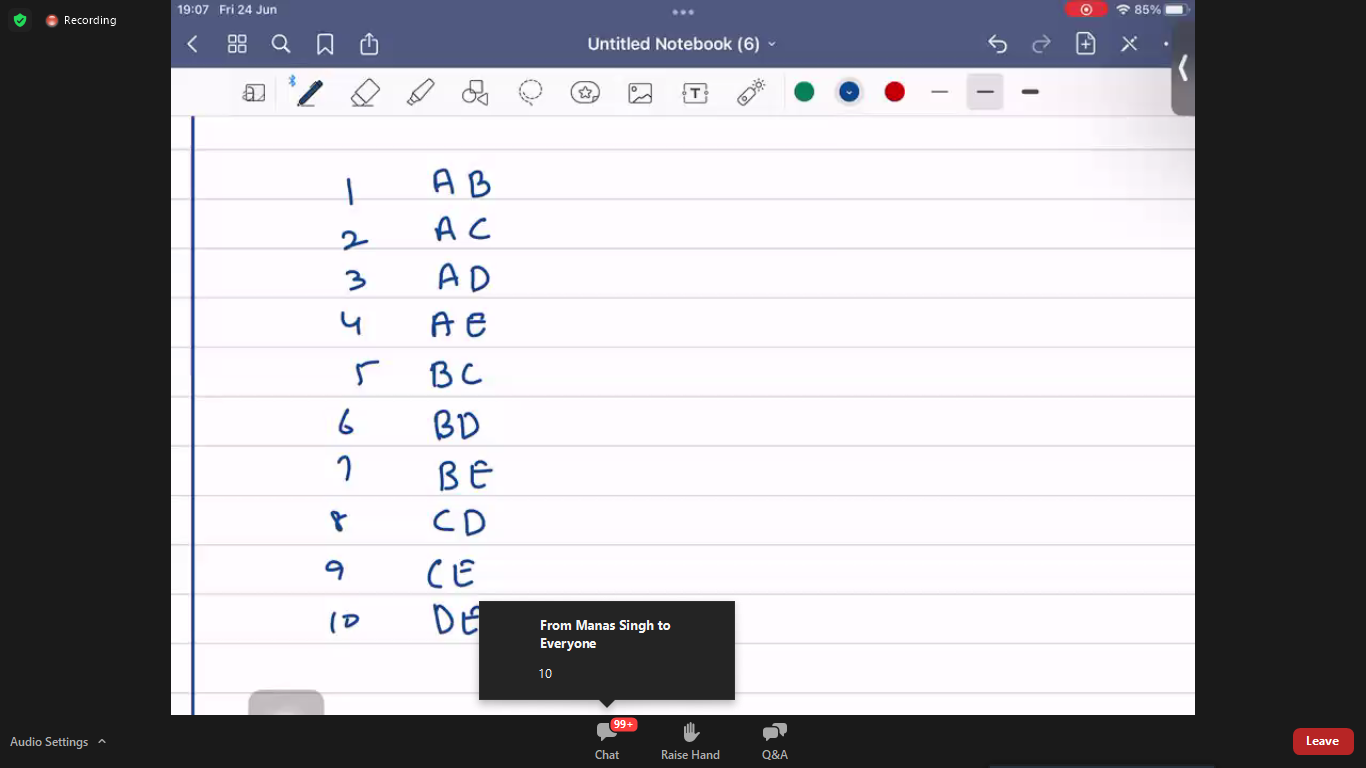 Recording
19:07 Fri 24 Jun
85%
Untitled Notebook (6)
T
1 AB
2 AC
3 AD
4 AE
5 BC
6 BD
7 BE
8 CD
9 CE
10 DE
From Manas Singh to
Everyone
10
99+
Audio Settings
Chat
Raise Hand
Q&A
Leave